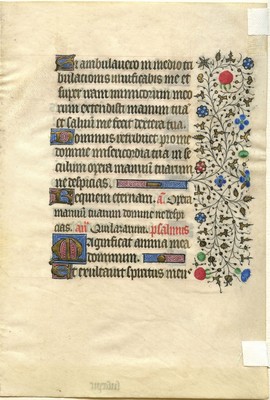 Si ambulavero in medio tri
bulationis vivificabis me et
super iram inimicorum meo
rum extendisti manum tuā
et salvū me fecit dextera tua.
Dominus retribuet pro me
domine misericordia tua in se
culum opera manuū tuarum
ne despicias.
Requiem eternam. a. Opera
manuū tuarum domine ne desp
cias. añ. Qui lazarum. psalmus
Magnificat anima mea
dominum.
Et exultavit spiritus meus